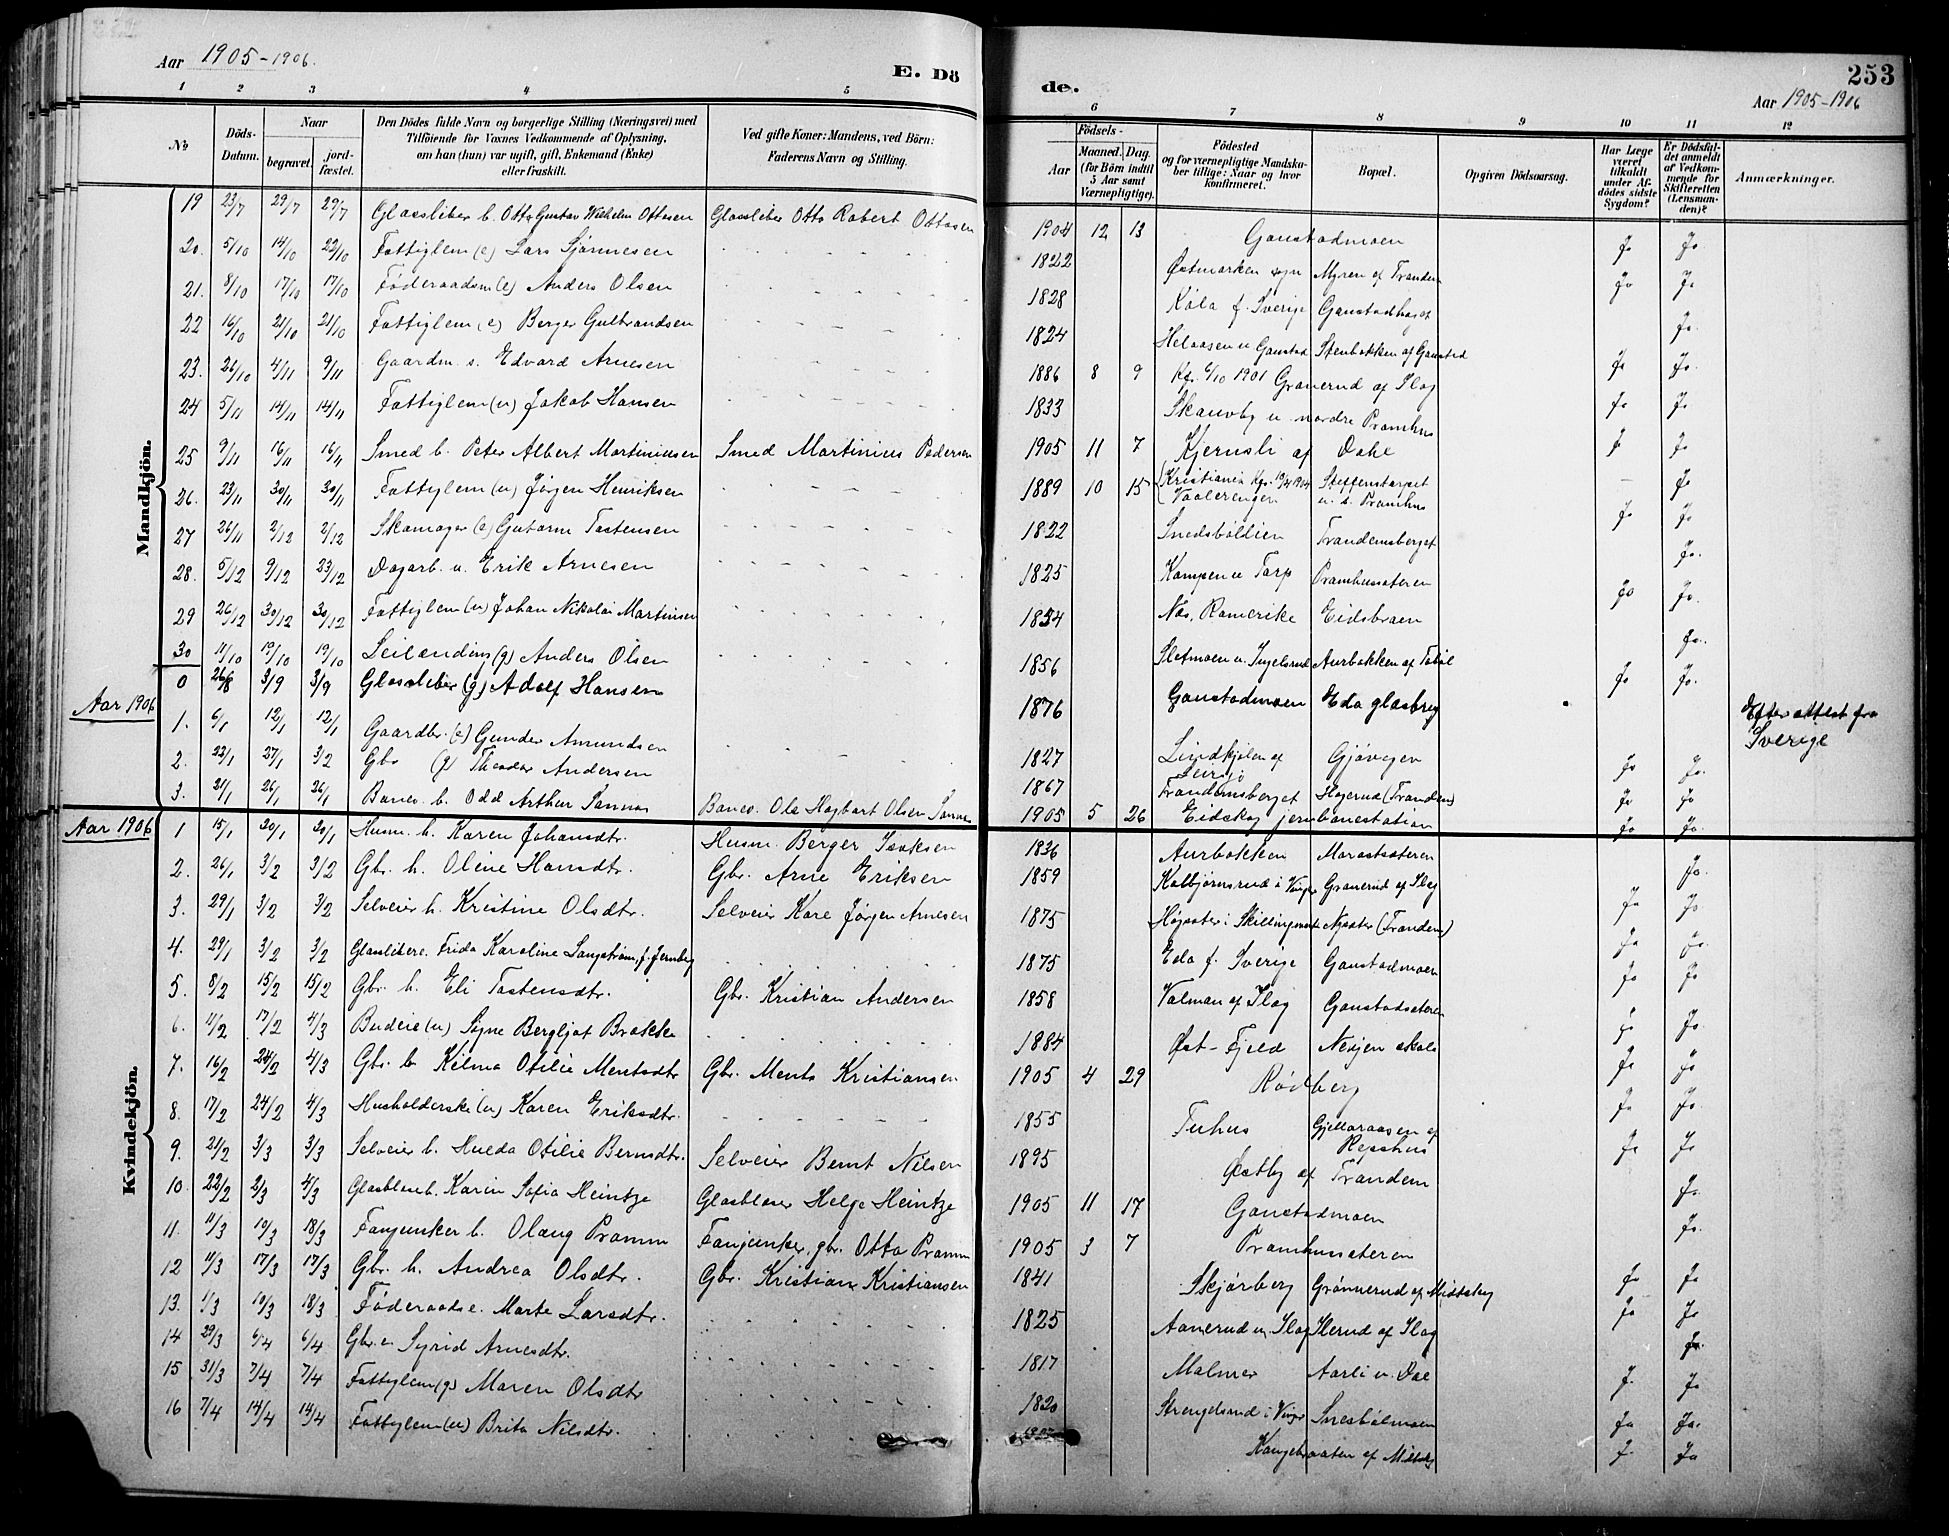 Aar 1905-1906.
E. Dö
de.
253
Aar 1905-1906
1 2 3 4 5
6 7 8 9 10 11 12
№
Döds-Datum.
Naar
begravet.
jord-fæstet.
Den Dödes fulde Navn og borgerlige Stilling (Næringsvei) med Tilföiende for Voxnes Vedkommende af Oplysning, om han (hun) var ugift, gift, Enkemand (Enke) eller fraskilt.
Ved gifte Koner: Mandens, ved Börn: Faderens Navn og Stilling.
Födsels-
Aar
Maaned. Dag.
(for Börn indtil 5 Aar samt Værnepligtige).
Födested og for værnepligtige Mandskaber tillige: Naar og hvor konfirmeret.
Bopæl.
Opgiven Dödsaarsag.
Har Læge været tilkaldt under Afdödes sidste Sygdom?
Er Dödsfaldet anmeldt af Vedkommende for Skifteretten (Lensmanden)?
Anmærkninger.
Mandkjön.
19 23/7 29/7 29/7 Glassliber b. Otto Gustav Wilhelm Ottesen Glassliber Otto Robert Ottosen 1904 12 13 Gaustadmoen Ja Ja
20. 5/10 14/10 22/10 Fattiglem (e) Lars Sjønnesen 1822 Østmarken sogn Myren af Tranden Ja Ja
21. 8/10 17/10 17/10 Føderaadsm (e) Anders Olsen 1828 Køla f. Sverige Gaustadhaget Ja
22 16/10 21/10 21/10 Fattiglem (e) Berger Gulbrandsen 1824 Helaasen u Gaustad Stenbakken af Gaustad Ja Ja.
23. 26/10 4/11 9/11 Gaardm. s. Edvard Arnesen 1886 8 9 Kfr. 6/10 1901 Granerud af Slag Ja Ja
24 5/11 14/11 14/11 Fattiglem (u) Jakob Hansen 1833 Skansby u nordre Pramhus
25 9/11 16/11 16/11 Smed b. Peter Albert Martiniusen Smed Martinius Pedersen 1905 11 7 Kjernsli af Dahe
26. 23/11 30/11 30/11 Fattiglem (u) Jørgen Henriksen 1889 10 15 Kristiania Kfr. 19/4 1904 Vaalerengen Steffenstorpet u. s. Pramhus
27 26/11 2/12 2/12 Skomager (e) Gutorm Tostensen 1822 Snedsbøldien Trandemsberget
28. 5/12 9/12 23/12 Dagarb. u. Erik Arnesen 1825 Kampen u Tarp Pramhussæteren
29 26/12 30/12 30/12 Fattiglem (u) Johan Nikolai Martinsen 1854 Næs, Romerike Eidsbraen
30 11/10 19/10 19/10 Leilænding (g) Anders Olsen 1856 Sletmoen u. Ingelsrud Aurbakken af Tobøl
0 26/8 3/9 3/9 Glassliber (g) Adolf Hansen 1876 Gaustadmoen Eda glasbrug Efter attest fra Sverige
Aar 1906
1. 6/1 12/1 12/1 Gaardbr. (e) Gunder Amundsen 1827 Lindkjølen af Leirsjø Gjøvegen Ja Ja.
2. 22/1 27/1 3/2 Gbr (g) Theodor Andersen 1867 Trandemsberget Hagerud (Tranden) Ja Ja
3. 21/1 26/1 26/1 Banev. b. Odd Arthur Sannas Banev. Ole Hagbart Olsen Sannas 1905 5 26 Eidskog jernbanestation Ja Ja.
Aar 1906
Kvindekjön.
1 15/1 20/1 20/1 Husm. h. Karen Johansdtr. Husm. Berger Isaksen 1836 Aurbakken Marastsæteren Ja.
2. 26/1 3/2 3/2 Gbr. h. Oline Hansdtr. Gbr. Arne Eriksen 1859 Kolbjørnsrud i Vinger Granerud af Slag Ja Ja
3. 29/1 3/2 3/2 Selveier h. Kristine Olsdtr. Selveier Kare Jørgen Arnesen 1875 Høgsæter i Skillingmark Nysæter (Trandem) Ja Ja.
4. 29/1 3/2 3/2 Glassliber e. Frida Karoline Langstrøm, f. Jernberg 1875 Eda f. Sverige Gaustadmoen Ja Ja
5. 8/2 15/2 15/2 Gbr. h. Eli Tostensdtr. Gbr. Kristian Andersen 1858 Valman af Slag Gaustadsæteren Ja Ja
6. 11/2 17/2 4/3 Budeie (u) Signe Bergljot Brakke 1884 Øst-Fjeld Nesjen skole Ja Ja
7. 16/2 24/2 4/3 Gbr. b Hilma Otilie Mentsdtr Gbr. Ments Kristiansen 1905 4 29 Rødberg Ja Ja.
8. 17/2 24/2 4/3 Husholderske (u) Karen Eriksdtr. 1855 Tuhus Gjelleraasen af Repshus Ja Ja
9. 21/2 3/3 3/3 Selveier b. Hulda Otilie Berntsdtr. Selveier Bernt Nilsen 1895 Østby af Trandem Ja
10. 22/2 2/3 4/3 Glasblæser b. Karin Sofia Heintze Glasblæser Helge Heintze 1905 11 17 Gaustadmoen Ja.
11. 11/3 19/3 18/3 Fanjunker b. Olaug Pramm Fanjunker, gbr. Otto Pramm 1905 3 7 Pramhussæteren
12 11/3 17/3 17/3 Gbr. h. Andrea Olsdtr. Gbr. Kristian Kristiansen 1841 Skjørberg Grønnerud af Midtskog Ja Ja
13. 1/3 19/3 18/3 Føderaads e. Marte Larsdtr. 1825 Aanerud u. Slag Slerud af Slag
14 29/3 6/4 6/4 Gbr. e. Sigrid Arnesdtr. 1817 Malmer Aarli u. Dal
15 31/3 7/4 7/4 Fattiglem (g) Maren Olsdtr 1820 Strengelsrud i Vinger Snesbølmoen Ja Ja.
16 7/4 14/4 14/4 Fattiglem (u) Brita Nilsdtr. Kangebraaten af Midtskog Ja